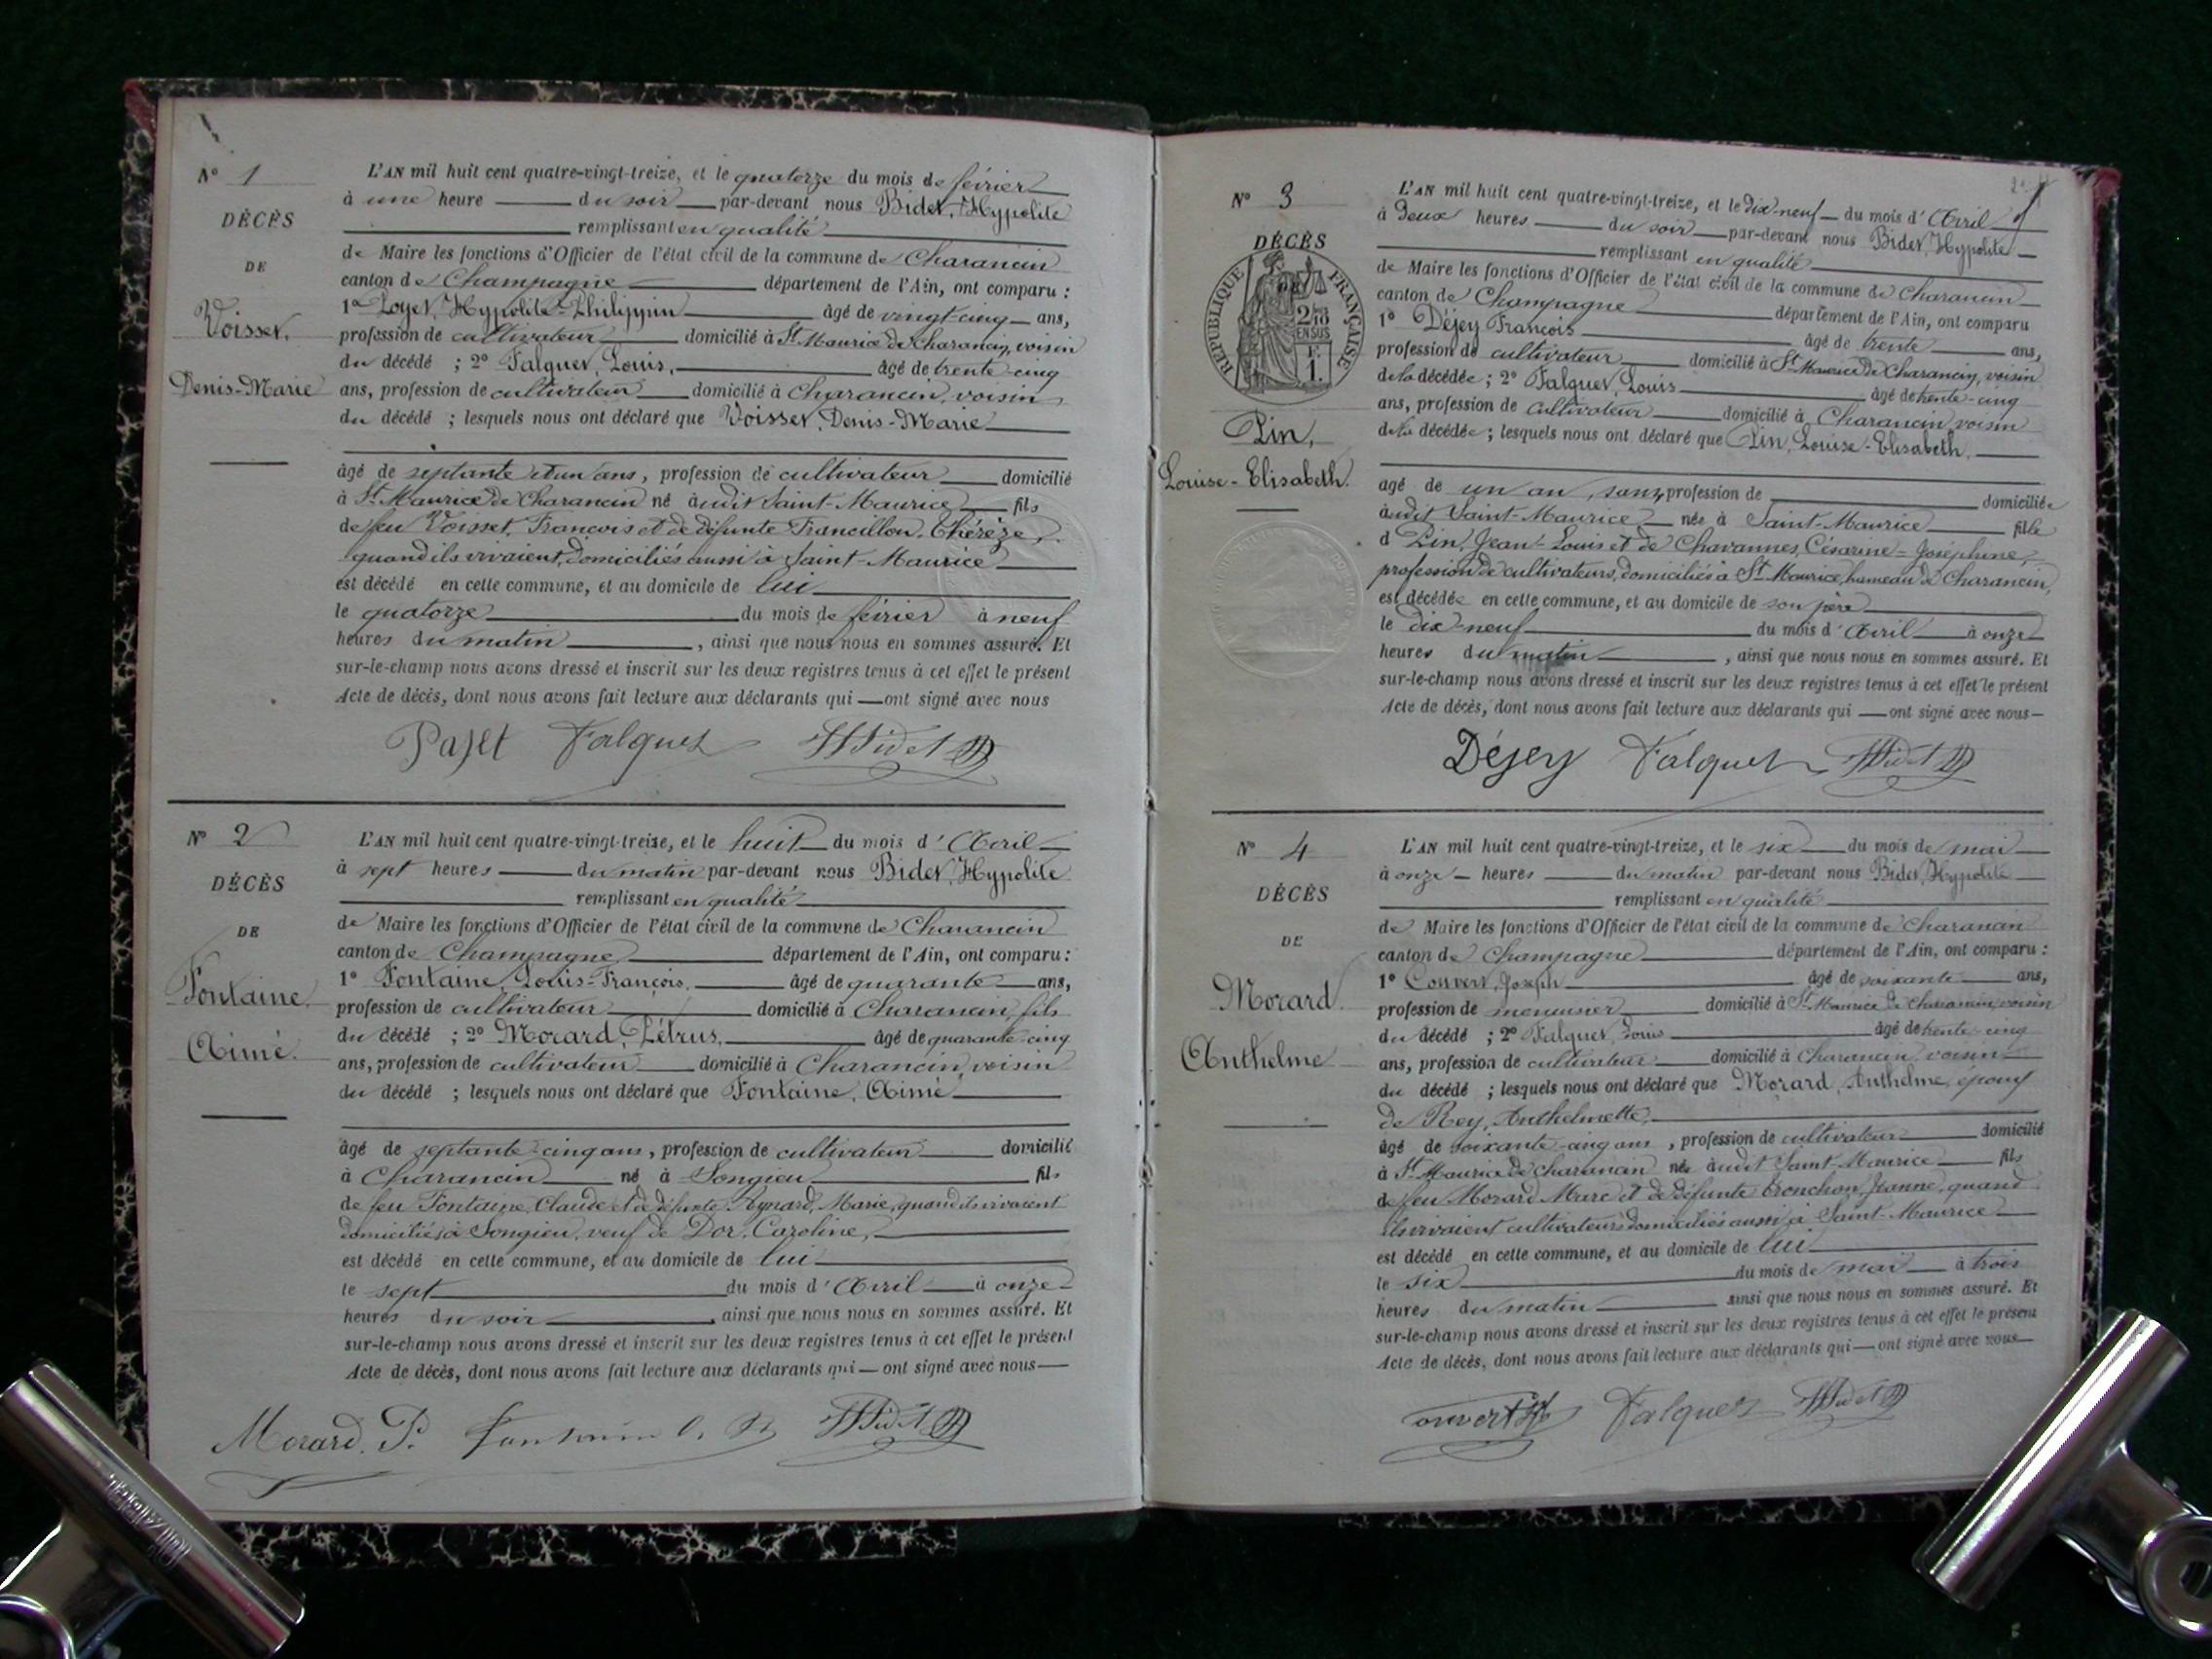 N° 1
DÉCÈS
DE
Voisset,
Denis-Marie
L'AN mil huit cent quatre-vingt-treize, et le quatorze du mois de février
à une heure du soir par-devant nous Bidet, Hypolite
remplissant en qualité
de Maire les fonctions d'Officier de l'état civil de la commune de Charancin
canton de Champagne département de l'Ain, ont comparu :
1° Hypolite-Philippin âgé de vingt-cinq ans,
profession de cultivateur domicilié à St Maurice de Charancin, voisin
du décédé ; 2° Falquet, Louis, âgé de trente-cinq
ans, profession de cultivateur domicilié à Charancin, voisin
du décédé ; lesquels nous ont déclaré que Voisset, Denis-Marie
âgé de septante et un ans, profession de cultivateur domicilié
à St Maurice de Charancin né audit Saint-Maurice fils
de feu Voisset, François et de défunte Francillon, Thérèze,
quand ils vivaient, domiciliés aussi à Saint-Maurice
est décédé en cette commune, et au domicile de lui
le quatorze du mois de février à neuf
heures du matin, ainsi que nous nous en sommes assuré. Et
sur-le-champ nous avons dressé et inscrit sur les deux registres tenus à cet effet le présent
Acte de décès, dont nous avons fait lecture aux déclarants qui ont signé avec nous
Falquet HBidet
N° 2
DÉCÈS
DE
Fontaine
Aimé.
L'AN mil huit cent quatre-vingt-treize, et le huit du mois d'Avril
à sept heures du matin par-devant nous Bidet, Hypolite
remplissant en qualité
de Maire les fonctions d'Officier de l'état civil de la commune de Charancin
canton de Champagne département de l'Ain, ont comparu :
1° Fontaine, Louis-François, âgé de quarante ans,
profession de cultivateur domicilié à Charancin, fils
du décédé ; 2° Morard, Pétrus, âgé de quarante-cinq
ans, profession de cultivateur domicilié à Charancin, voisin
du décédé ; lesquels nous ont déclaré que Fontaine, Aimé
âgé de septante-cinq ans, profession de cultivateur domicilié
à Charancin né à Songieu fils
de feu Fontaine, Claude et de défunte Aynard, Marie, quand ils vivaient
domiciliés à Songieu, veuf de Dor, Caroline,
est décédé en cette commune, et au domicile de lui
le sept du mois d'Avril à onze
heures du soir, ainsi que nous nous en sommes assuré. Et
sur-le-champ nous avons dressé et inscrit sur les deux registres tenus à cet effet le présent
Acte de décès, dont nous avons fait lecture aux déclarants qui ont signé avec nous
Morard. P. HBidet
N° 3
DÉCÈS
RÉPUBLIQUE FRANÇAISE
2/10 EN SUS
F. 1.
Pin,
Louise-Elisabeth.
L'AN mil huit cent quatre-vingt-treize, et le dix-neuf du mois d'Avril
à Deux heures du soir par-devant nous Bidet, Hypolite
remplissant en qualité
de Maire les fonctions d'Officier de l'état civil de la commune de Charancin
canton de Champagne département de l'Ain, ont comparu
1° Déjey François âgé de trente ans,
profession de cultivateur domicilié à St Maurice de Charancin, voisin
de la décédée ; 2° Falquet, Louis âgé de trente-cinq
ans, profession de cultivateur domicilié à Charancin voisin
de la décédée ; lesquels nous ont déclaré que Pin, Louise-Elisabeth,
agé de un an, sans profession de domiciliée
audit Saint-Maurice née à Saint-Maurice fille
d Pin, Jean-Louis et de Chavannes, Césarine-Joséphine,
profession de cultivateurs, domiciliés à St Maurice, hameau de Charancin,
est décédée en cette commune, et au domicile de son père
le dix-neuf du mois d'Avril à onze
heures du matin, ainsi que nous nous en sommes assuré. Et
sur-le-champ nous avons dressé et inscrit sur les deux registres tenus à cet effet le présent
Acte de décès, dont nous avons fait lecture aux déclarants qui ont signé avec nous
Déjey Falquet HBidet
N° 4
DÉCÈS
DE
Morard
Anthelme
L'AN mil huit cent quatre-vingt-treize, et le six du mois de mai
à onze heures du matin par-devant nous Bidet, Hypolite
remplissant en qualité
de Maire les fonctions d'Officier de l'état civil de la commune de Charancin
canton de Champagne département de l'Ain, ont comparu :
1° Convert, Joseph âgé de soixante ans,
profession de menuisier domicilié à St Maurice de Charancin, voisin
du décédé ; 2° Falquet, Louis âgé de trente-cinq
ans, profession de cultivateur domicilié à Charancin, voisin
du décédé ; lesquels nous ont déclaré que Morard, Anthelme, époux
de Rey, Anthelmette,
âgé de soixante-cinq ans, profession de cultivateur domicilié
à St Maurice de Charancin né audit Saint-Maurice fils
de feu Morard Marc et de défunte Tronchon, Jeanne, quand
ils vivaient cultivateurs domiciliés aussi à Saint-Maurice
est décédé en cette commune, et au domicile de lui
le six du mois de mai à trois
heures du matin ainsi que nous nous en sommes assuré. Et
sur-le-champ nous avons dressé et inscrit sur les deux registres tenus à cet effet le présent
Acte de décès, dont nous avons fait lecture aux déclarants qui ont signé avec nous
Falquet HBidet